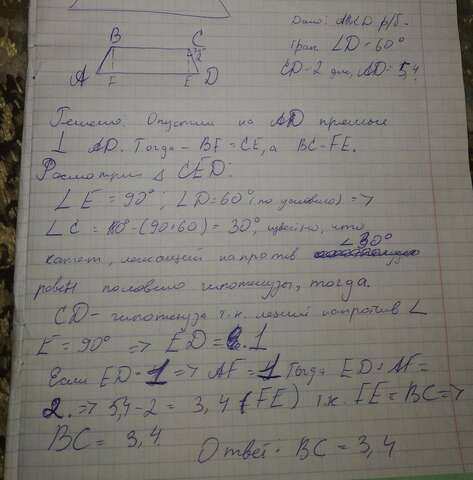 Дано: ABCD р/б-
трап. ∠D = 60°
CD - 2 дм, AD = 5,4.
B C
2
A F E D
Решение: Опустим на AD прямые
⊥ AD. Тогда - BF = CE, а BC - FE.
Расмотрим △ CED:
∠E = 90°; ∠D = 60° (по условию) =>
∠C = 180° - (90+60) = 30°, известно, что
катет, лежащий напротив ∠30°
равен половине гипотенузы, тогда.
CD - гипотенуза т.к. лежит напротив ∠
E = 90° => ED = 1
Если ED - 1 => AF = 1. Тогда ED + AF =
2. => 5,4 - 2 = 3,4 (FE) т.к. FE = BC =>
BC = 3,4.
Ответ: BC = 3,4